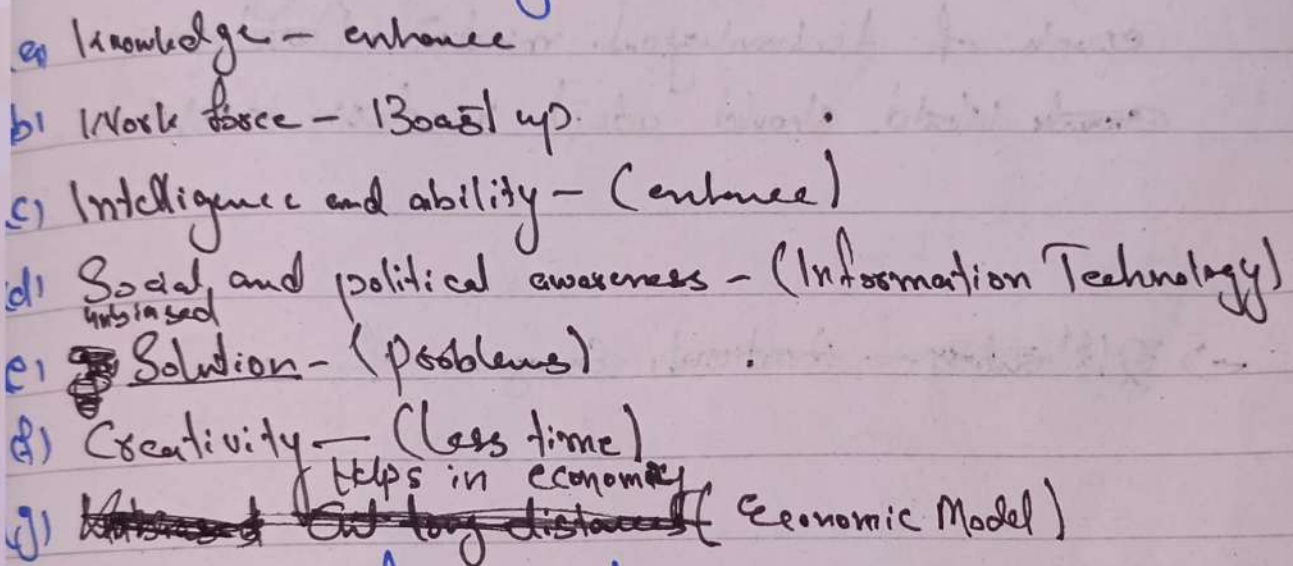 a) Knowledge - enhance
b) Work force - Boost up.
c) Intelligence and ability - (enhance)
d) Social and political awareness - (Information Technology)
unbiased
e) Solution - (problems)
f) Creativity - (Less time)
Helps in economy
g) (Economic Model)